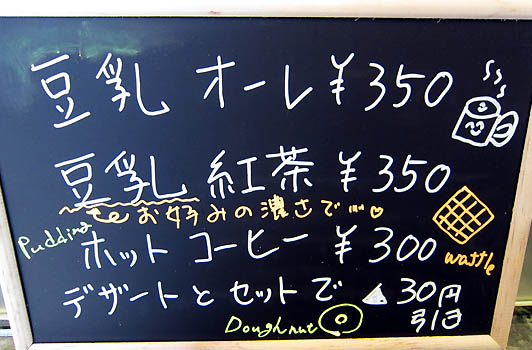 豆乳 オーレ ¥350
豆乳 紅茶 ¥350
お好みの濃さで…♡
Pudding
ホットコーヒー ¥300
waffle
デザートとセットで ▲30円引き
Doughnut